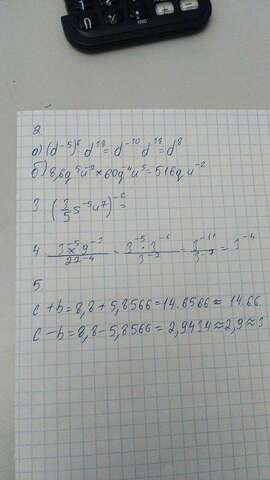 2.
а) (d⁻⁵)⁶ d¹⁸ = d⁻¹⁰ d¹⁸ = d⁸
б) 8,6g⁵u⁻² × 60g⁻⁴u⁵ = 516g u⁻²
3 (3/5 s⁻⁵u⁷)⁻² =
4 3⁻⁵ × 9⁻³ / 27⁻⁴ = 3⁻⁵ · 3⁻⁶ / 3⁻⁷ = 3⁻¹¹ / 3⁻⁷ = 3⁻⁴
5.
c + b = 8,8 + 5,8566 = 14.6566 ≈ 14.66
c − b = 8,8 − 5,8566 = 2,9434 ≈ 2,9 ≈ 3